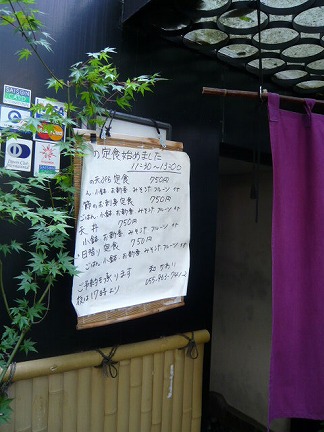 の定食始めました
11:30〜13:00
の天ぷら定食 750円
ん、小鉢、お新香 みそ汁 フルーツ
節のお刺身定食 750円
ごはん、小鉢、お新香 みそ汁 フルーツ
天丼 750円
小鉢、お新香 みそ汁 フルーツ
・日替り定食 750円
ごはん、小鉢、お新香、みそ汁 フルーツ
ご予約を承ります
夜は17時より
SAISON
CARD
Diners Club
International